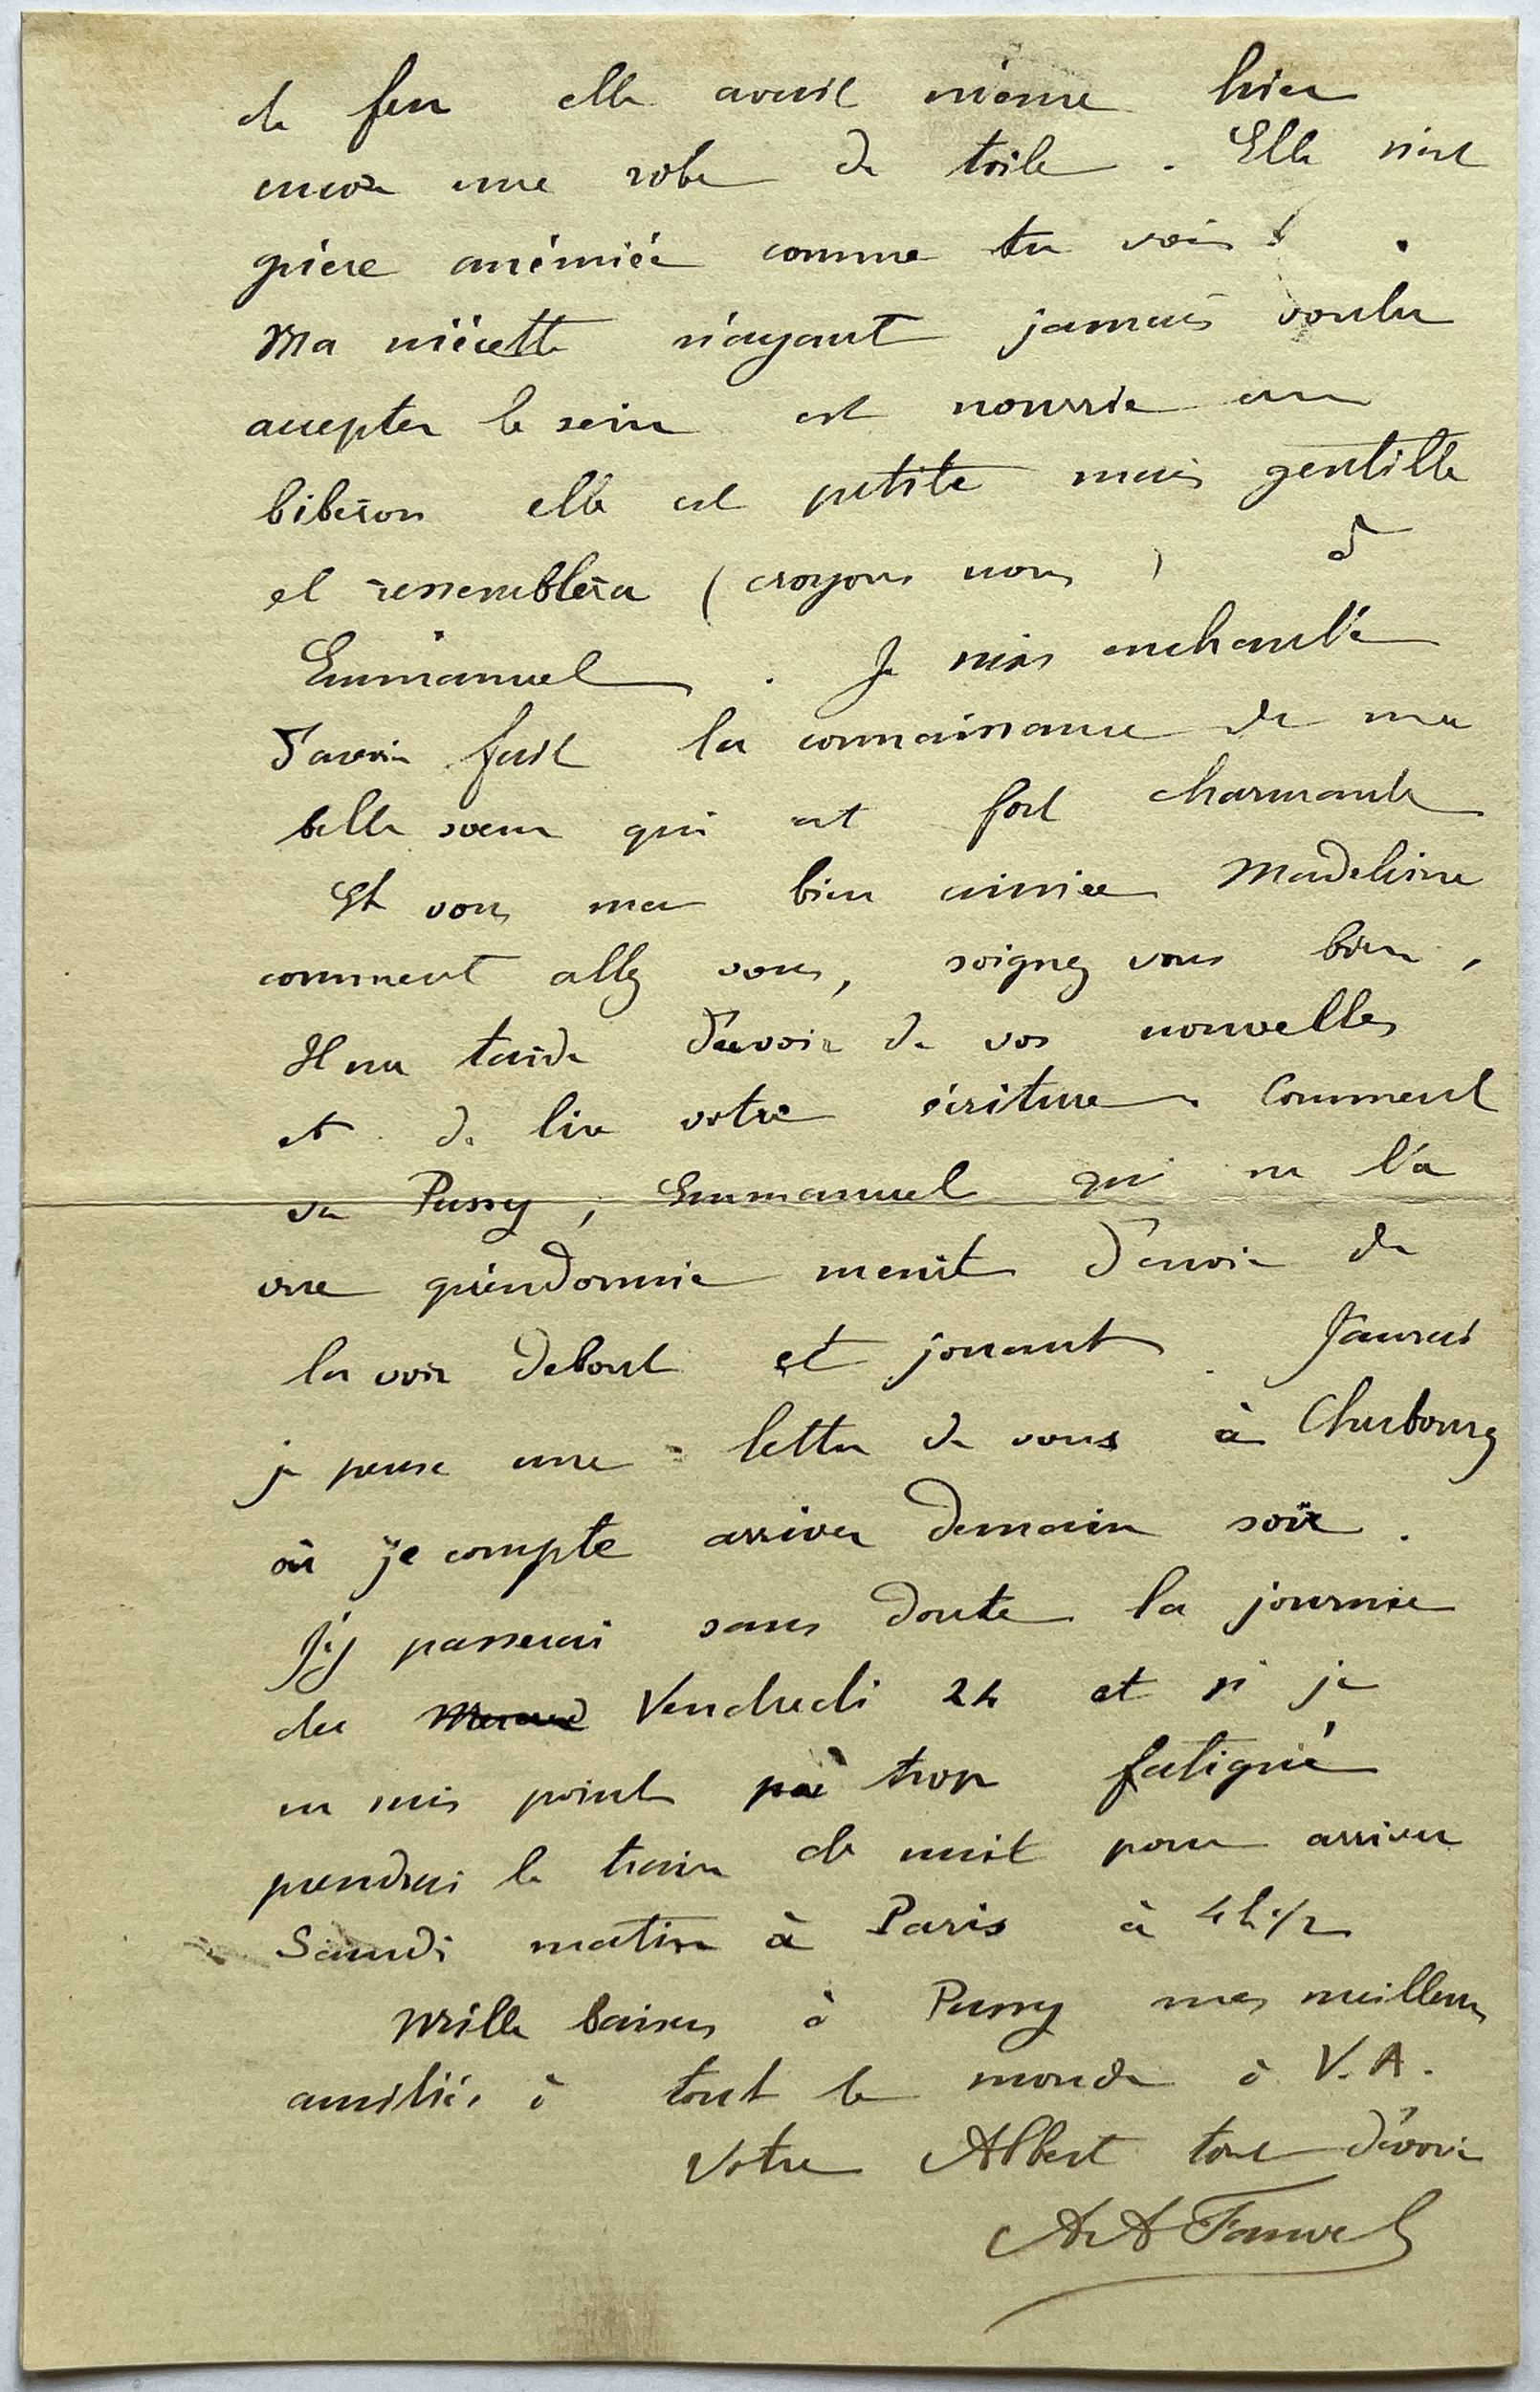 de feu elle avait même hier
encore une robe de toile. Elle n'est
guère anémiée comme tu vois !
Ma niécette n'ayant jamais voulu
accepter le sein est nourrie au
biberon elle est petite mais gentille
et ressemblera (croyons nous) à
Emmanuel. Je suis enchanté
d'avoir fait la connaissance de ma
belle soeur qui est fort charmante
Et vous ma bien aimée Madeleine
comment allez vous, soignez vous bien,
Il me tarde d'avoir de vos nouvelles
et de lire votre écriture. Comment
va Pussy, Emmanuel qui ne l'a
vue qu'endormie meurt d'envie de
la voir debout et jouant. J'aurai
je pense une lettre de vous à Cherbourg
où je compte arriver demain soir.
J'y passerai sans doute la journée
du Vendredi 24 et si je
ne suis point trop fatigué
prendrai le train de nuit pour arriver
Samedi matin à Paris à 4h 1/2
Mille baisers à Pussy mes meilleures
amitiés à tout le monde à V.A.
Votre Albert tout dévoué
AA Fauvel